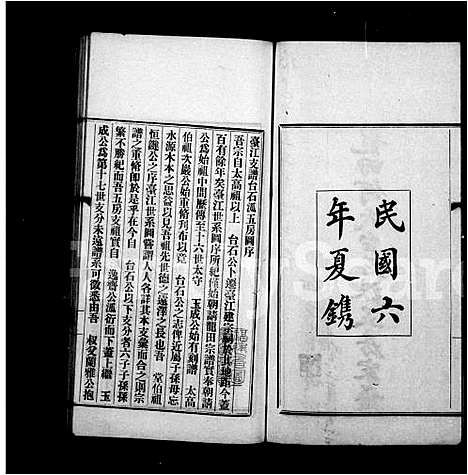 民國六
年夏鐫
臺江支譜台石派五房圖序
吾宗自太高祖以上 台石公卜遷臺江建宗祠於其地迄今蓋
百有餘年矣臺江世系圖序所紀僅始朝請龍田宗譜實奉朝請
公為始祖中間歷傳至十六世太守 玉成公始有刻譜 太高
伯祖次嚴公始重脩刊布以竟 台石公之志俾近屬子孫毋忘
水源木本之思益以見吾祖先世德之遠澤之長也吾 堂伯祖
恒鏡公之序臺江世系圖嘗謂人人各詳其本支彙而合之則宗
譜之重脩即於是乎在今自 台石公以下支分者六子子孫孫
繁不勝紀而吾五房支祖實自 逸齋公派衍而下蓋上繼 玉
成公為第十七世支分未遠譜系可徵悉由吾 叔父蘭雅公抱